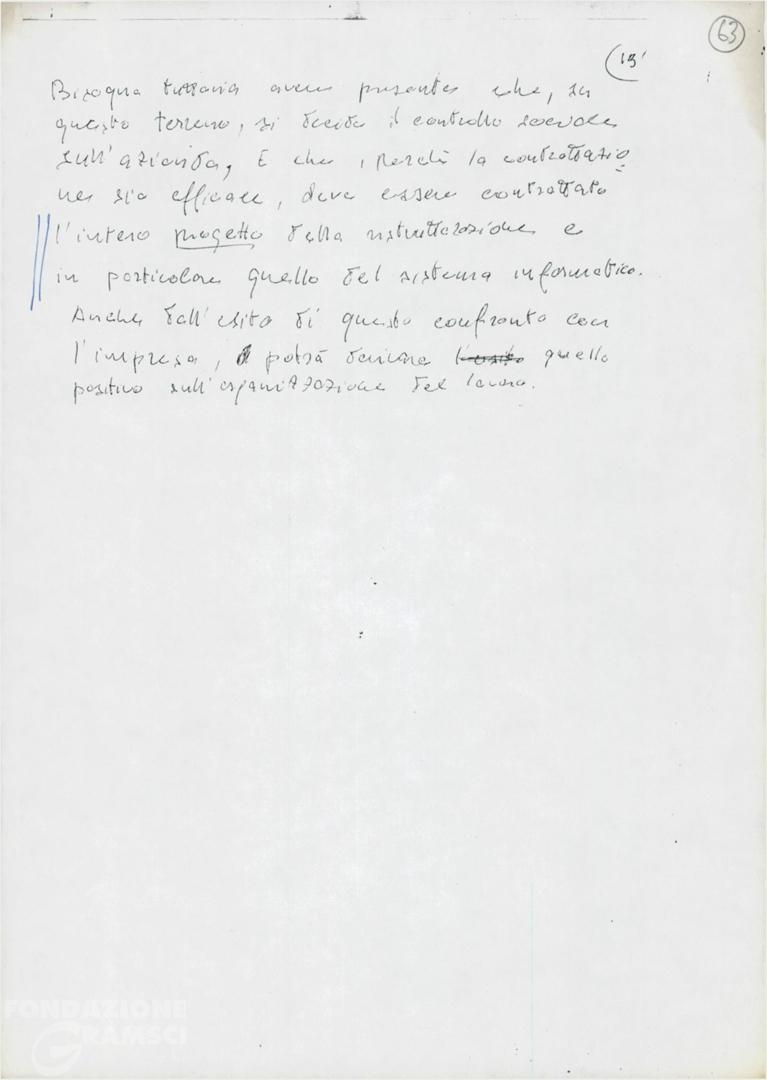 63
15'
Bisogna tuttavia avere presente che, su
questo terreno, si decide il controllo sociale
sull'azienda, E che, perché la contrattazio=
ne sia efficace, deve essere contrattato
l'intero progetto della ristrutturazione e
in particolare quello del sistema informatico.
Anche dall'esito di questo confronto con
l'impresa, potrà derivare l'esito quello
positivo sull'organizzazione del lavoro.
FONDAZIONE
GRAMSCI